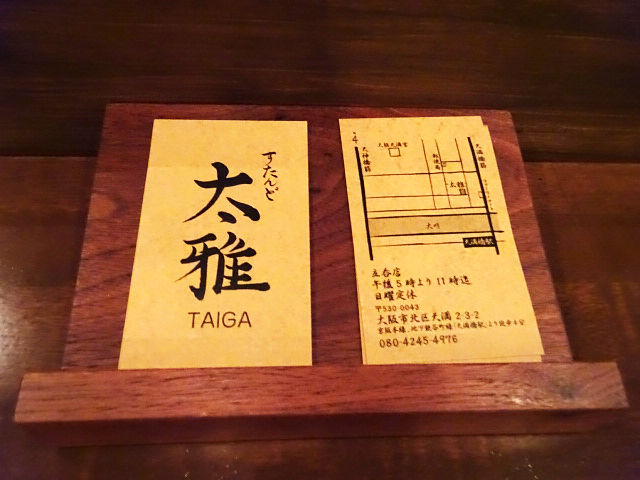 すたんど
太雅
TAIGA
天神橋筋
大阪天満宮
郵便局
天満橋筋
太雅
大川
天満橋駅
立呑店
午後5時より11時迄
日曜定休
〒530-0043
大阪市北区天満2-3-2
京阪本線、地下鉄谷町線「天満橋駅」より徒歩4分
080-4245-4976